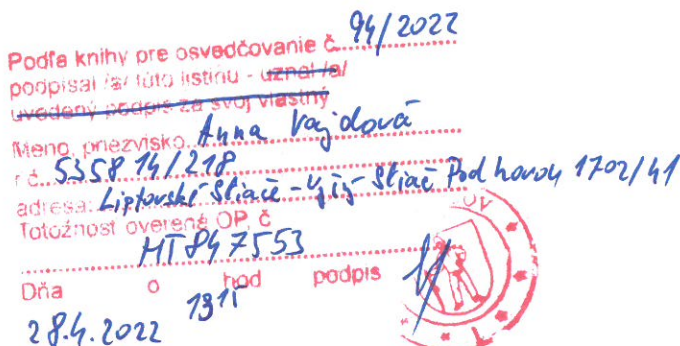 Podľa knihy pre osvedčovanie č. 94/2022
podpísal /a/ túto listinu - uznal /a/
uvedený podpis za svoj vlastný
Meno, priezvisko Anna Vajdová
r č. 535814/218
adresa: Liptovské Sliače - Vyšný Sliač Pod horou 1702/41
Totožnosť overená OP, č
HT847553
Dňa o hod podpis
28.4.2022 1315